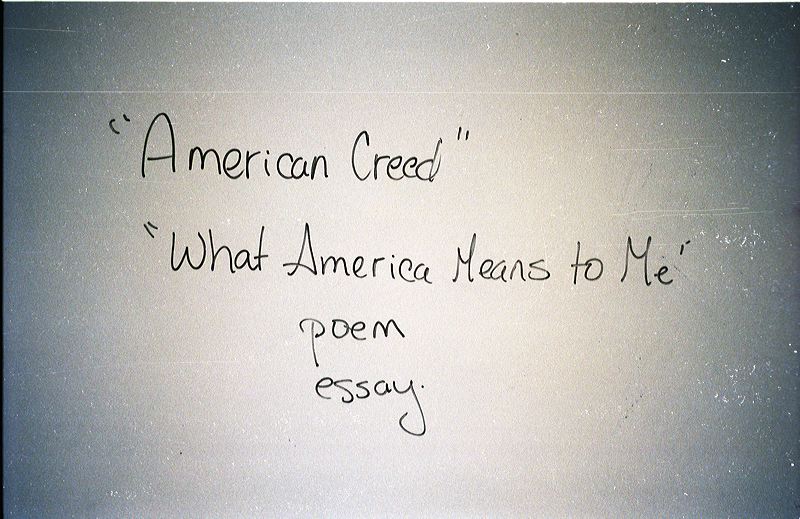 "American Creed"
"What America Means to Me"
poem
essay.